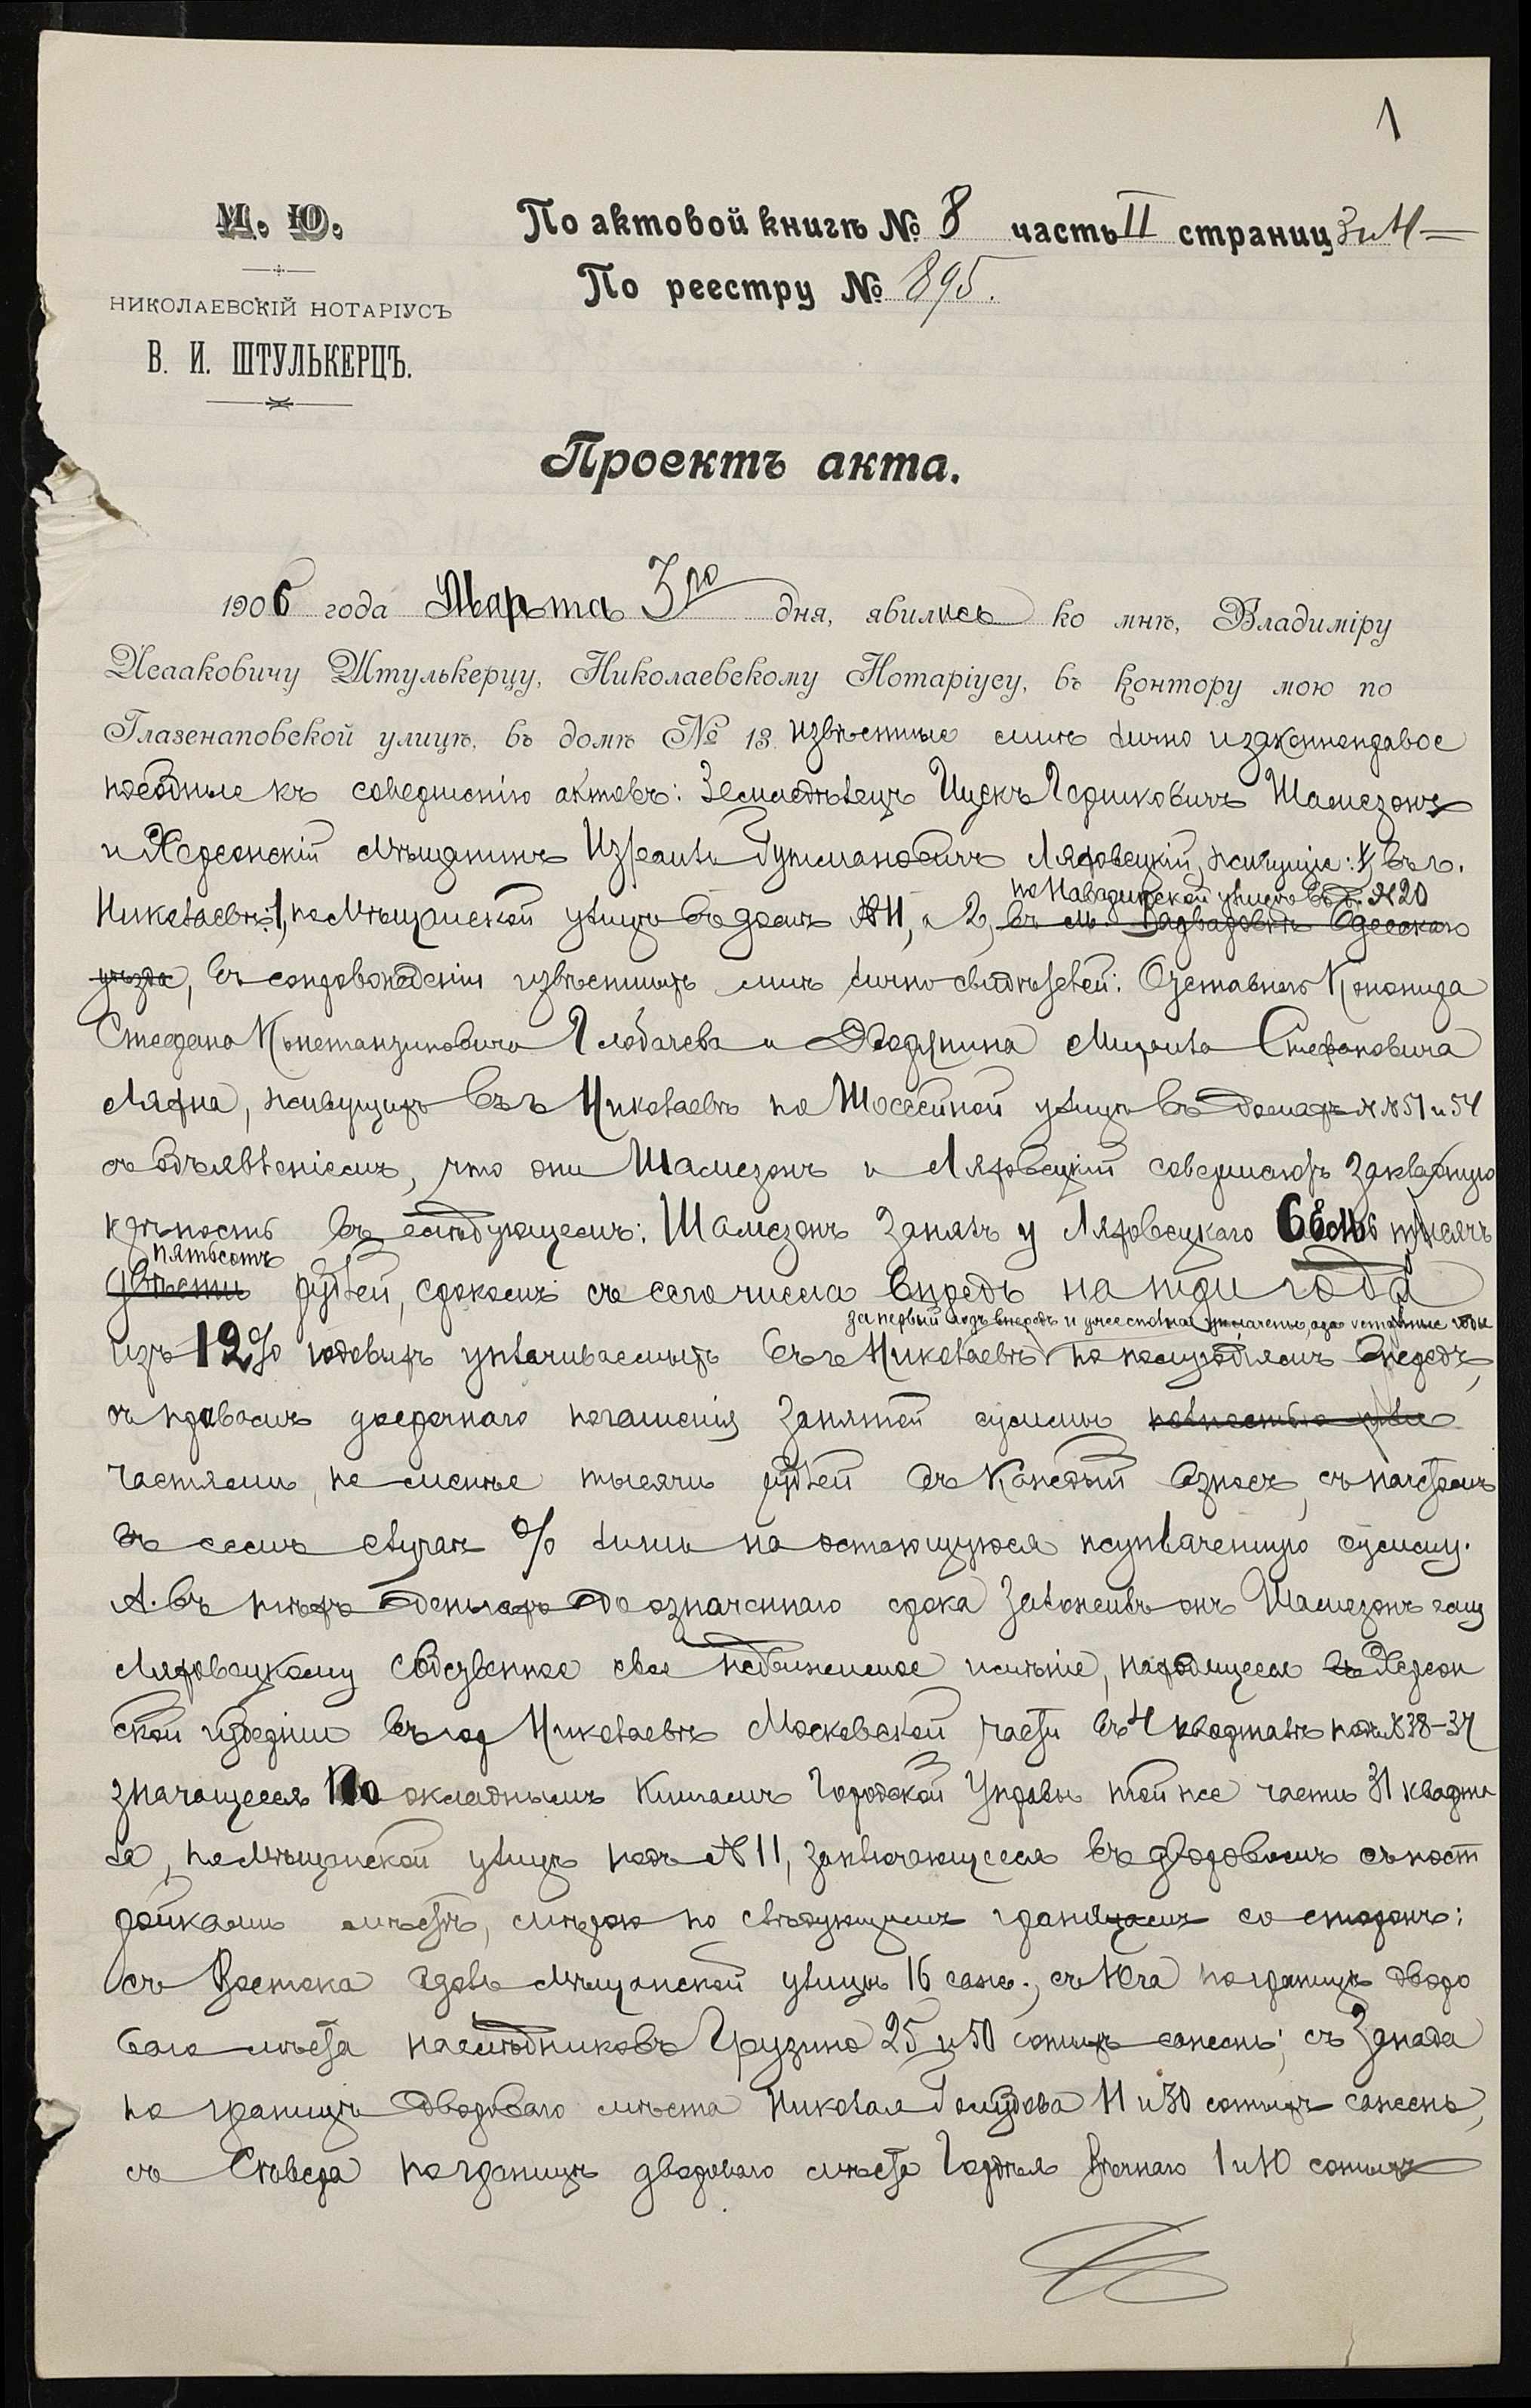 1
М. Ю.
НИКОЛАЕВСКІЙ НОТАРІУСЪ
В. И. ШТУЛЬКЕРЦЪ.
По актовой книгѣ № 8 часть II страниц 3 и 4
По реестру № 895.
Проектъ акта.
1906 года Марта 3го дня, явились ко мнѣ, Владиміру
Исааковичу Штулькерцу, Николаевскому Нотаріусу, въ контору мою по
Глазенаповской улицѣ, въ домѣ № 13 извѣстные мнѣ лично и законноправоспо
собные къ совершенію актовъ: Земледѣлецъ Ицекъ Гершковичъ Шамезонъ
и Херсонскій мѣщанинъ Израиль Гутмановичъ Ляховецкій, живущіе: 1, въ г.
Николаевѣ: 1, по Мѣщанской улицѣ въ домѣ № 11, и 2, въ м.
по улицѣ въ д. № 20
Одесскаго
уѣзда, въ сопровожденіи извѣстныхъ мнѣ лично свидѣтелей: Отставного
Степана Константиновича Глобачева и Дворянина Михаила Стефановича
живущихъ въ г. Николаевѣ по Шоссейной улицѣ въ домахъ № № 51 и 54
съ объявленіемъ, что они Шамезонъ и Ляховецкій совершаютъ закладную
крѣпость въ слѣдующемъ: Шамезонъ занялъ у Ляховецкаго шесть тысячъ
пятьсотъ
двѣсти рублей, срокомъ съ сего числа впредь на три года
за первый годъ впередъ и уже сполна уплачены, а за остальные годы
изъ 12% годовыхъ уплачиваемыхъ въ г. Николаевѣ по полугодіямъ впередъ,
съ правомъ досрочнаго погашенія занятой суммы полностью или
частями, не менѣе тысячи рублей въ каждый взносъ, съ начетомъ
въ семъ случаѣ % лишь на остающуюся неуплаченную сумму.
А въ тѣхъ деньгахъ до означеннаго срока заложилъ онъ Шамезонъ ему
Ляховецкому собственное свое недвижимое имѣніе, находящееся въ Херсон
ской губерніи въ гор. Николаевѣ Московской части въ 4 кварталѣ подъ № 38-37
значащееся по окладнымъ книгамъ Городской Управы той же части 31 кварта
ла, по Мѣщанской улицѣ подъ № 11, заключающееся въ дворовомъ съ пост
ройками мѣстѣ, мѣрою по слѣдующимъ границамъ со сторонъ:
съ Востока вдоль Мѣщанской улицы 16 саж.; съ Юга по границѣ дворо
ваго мѣста наслѣдниковъ Грузина 25 и 50 сотыхъ сажень; съ Запада
по границѣ двороваго мѣста Николая 11 и 30 сотыхъ сажень,
съ Сѣвера по границѣ двороваго мѣста Гордѣя 1 и 10 сотыхъ